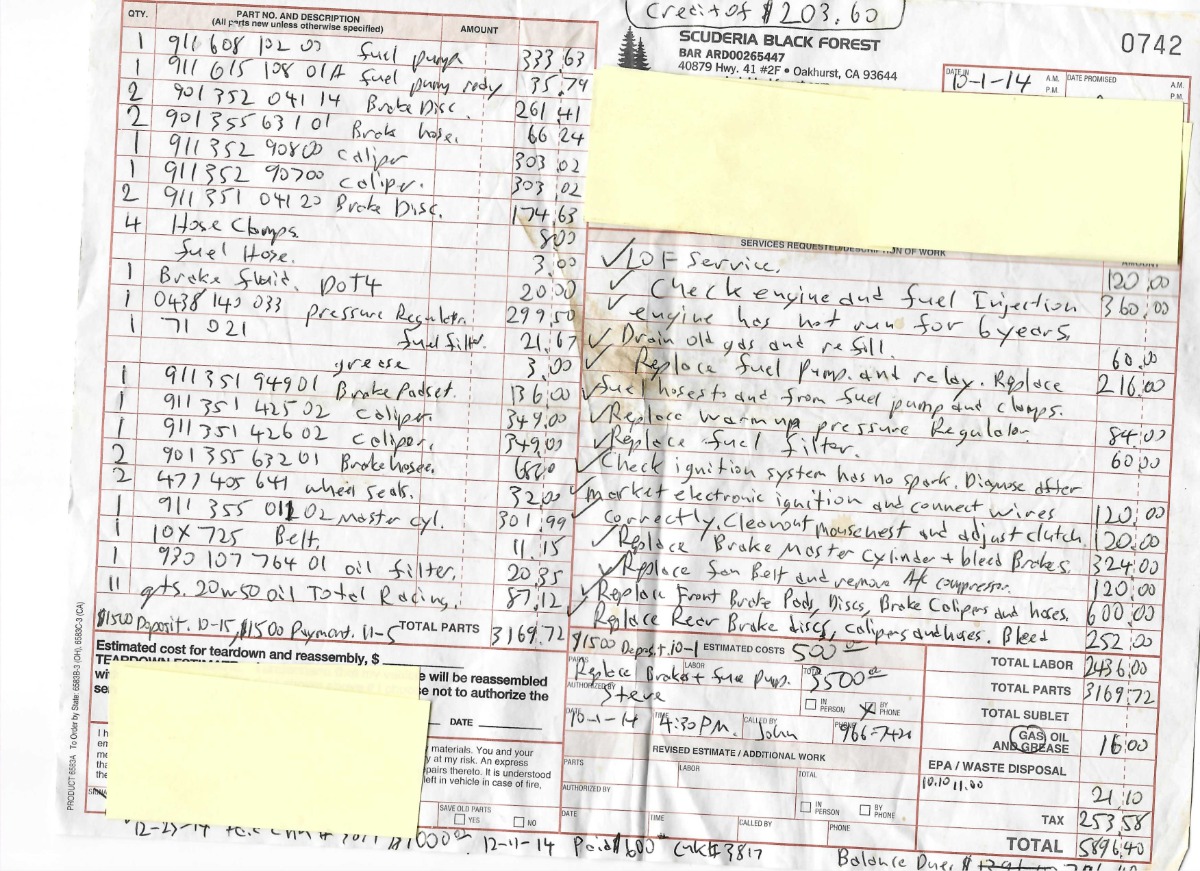 Credit of $203.60
SCUDERIA BLACK FOREST
BAR ARD00265447
40879 Hwy. 41 #2F • Oakhurst, CA 93644
0742
DATE IN 10-1-14 A.M. P.M. DATE PROMISED A.M. P.M.
QTY. PART NO. AND DESCRIPTION AMOUNT
(All parts new unless otherwise specified)
1 911 608 102 00 fuel pump 333.63
1 911 615 108 01A fuel pump relay 35.74
2 901 352 041 14 Brake Disc. 261.41
2 901 355 631 01 Brake hose. 66.24
1 911 352 90800 caliper 303.02
1 911 352 90700 caliper. 303.02
2 911 351 041 20 Brake Disc. 174.63
4 Hose Clamps 8.00
fuel Hose. 3.00
1 Brake fluid. DOT4 20.00
1 0438 140 033 pressure Regulator 299.50
1 71 021 fuel filter. 21.67
grease 3.00
1 911 351 94901 Brake Padset. 136.00
1 911 351 42502 Caliper. 349.00
1 911 351 42602 caliper. 349.00
2 901 355 63201 Brake hoses.
2 477 405 641 wheel seals. 32.00
1 911 355 011 02 Master cyl. 301.99
1 10X 725 Belt. 11.15
1 930 107 764 01 oil filter. 20.35
11 qts. 20w50 oil Total Racing. 87.12
$1500 Deposit. 10-15, $1500 Payment. 11-5 TOTAL PARTS 3169.72
SERVICES REQUESTED/DESCRIPTION OF WORK AMOUNT
✓ LOF Service. 120.00
✓ Check engine and fuel Injection 360.00
✓ engine has not run for 6 years.
✓ Drain old gas and refill. 60.00
✓ Replace fuel pump and relay. Replace 216.00
✓ fuel hoses to and from fuel pump and clamps.
✓ Replace warm up pressure Regulator 84.00
✓ Replace fuel filter. 60.00
✓ Check ignition system has no spark. Diagnose after
✓ market electronic ignition and connect wires 120.00
correctly. Cleanout mousenest and adjust clutch. 120.00
✓ Replace Brake Master Cylinder + bleed Brakes. 324.00
✓ Replace fan Belt and remove A/c compressor. 120.00
✓ Replace Front Brake Pads, Discs, Brake Calipers and hoses. 600.00
Replace Rear Brake discs, calipers and hoses. Bleed 252.00
$1500 Deposit. 10-1 ESTIMATED COSTS 500.00
PARTS LABOR TOTAL
Replace Brakes + fuel pump. 3500.00
AUTHORIZED BY Steve IN PERSON BY PHONE
DATE 10-1-14 TIME 4:30 P.M. CALLED BY John PHONE
REVISED ESTIMATE / ADDITIONAL WORK
PARTS LABOR TOTAL
AUTHORIZED BY IN PERSON BY PHONE
DATE TIME CALLED BY PHONE
TOTAL LABOR 2436.00
TOTAL PARTS 3169.72
TOTAL SUBLET
GAS, OIL AND GREASE 16.00
EPA / WASTE DISPOSAL
10.10 11.00 21.10
TAX 253.58
TOTAL 5896.40
Estimated cost for teardown and reassembly, $
TEARDOWN
will be reassembled
not to authorize the
DATE
materials. You and your
at my risk. An express
thereto. It is understood
left in vehicle in case of fire,
SAVE OLD PARTS
YES NO
PRODUCT 6583A To Order by State: 6583B-3 (OH), 6583C-3 (CA)
12-23-14 $1000 12-11-14 Paid $600 chk# 3817
Balance Due: $